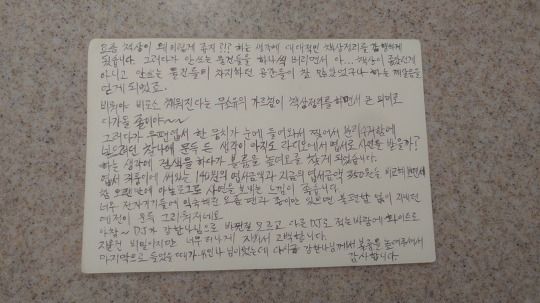 요즘 책상이 왜이렇게 좁지?!? 하는 생각에 대대적인 책상정리를 감행하게
되었습니다. 그러다가 안쓰는 물건들을 하나씩 버리면서 아... 책상이 좁았던게
아니고 안쓰는 물건들이 차지하던 공간들이 참 많았었구나 하는 깨달음을
얻게 되었죠.
비워야 비로소 채워진다는 무소유의 가르침이 책상정리를 하면서 큰 의미로
다가올 줄이야~~
그러다가 우편엽서 한 뭉치가 눈에 들어와서 찢어서 쓰레기통에
넣으려던 찰나에 문득 든 생각이 아직도 라디오에서 엽서로 사연을 받을까?
하는 생각에 검색을 하다가 볼륨을 높여요를 찾게 되었습니다.
엽서 겉동에 써있는 140원의 엽서금액과 지금의 엽서금액 350원을 비교해보면서
참 오랜만에 아날로그로 사연을 보내는 느낌이 좋습니다.
너무 전자기기들에 익숙해진 요즘 펜과 종이만 있으면 불편함 없이 지내던
예전이 문득 그리워지네요.
아참~ DJ가 강한나님으로 바뀐걸 모르고 다른 DJ로 적는바람에 화이트로
지운건 비밀이지만 너무 티나게 지워서 고백합니다.
마지막으로 들었을 때가 유인나 님이었는데 다시금 강한나님께서 볼륨을 높여주셔서
감사합니다.